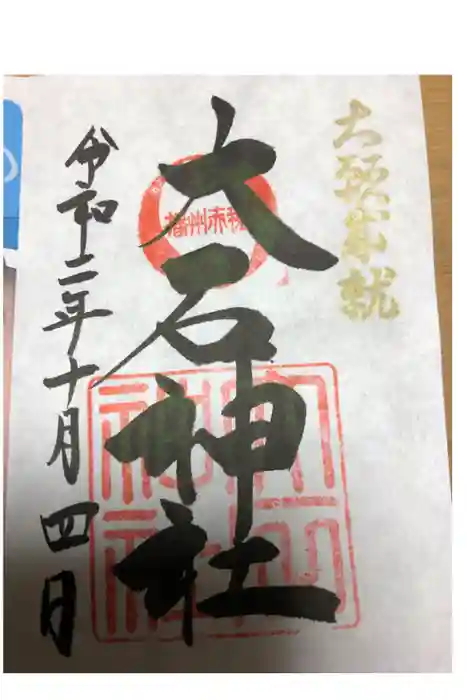 大願成就
播州赤穂
大石神社
令和二年十月四日